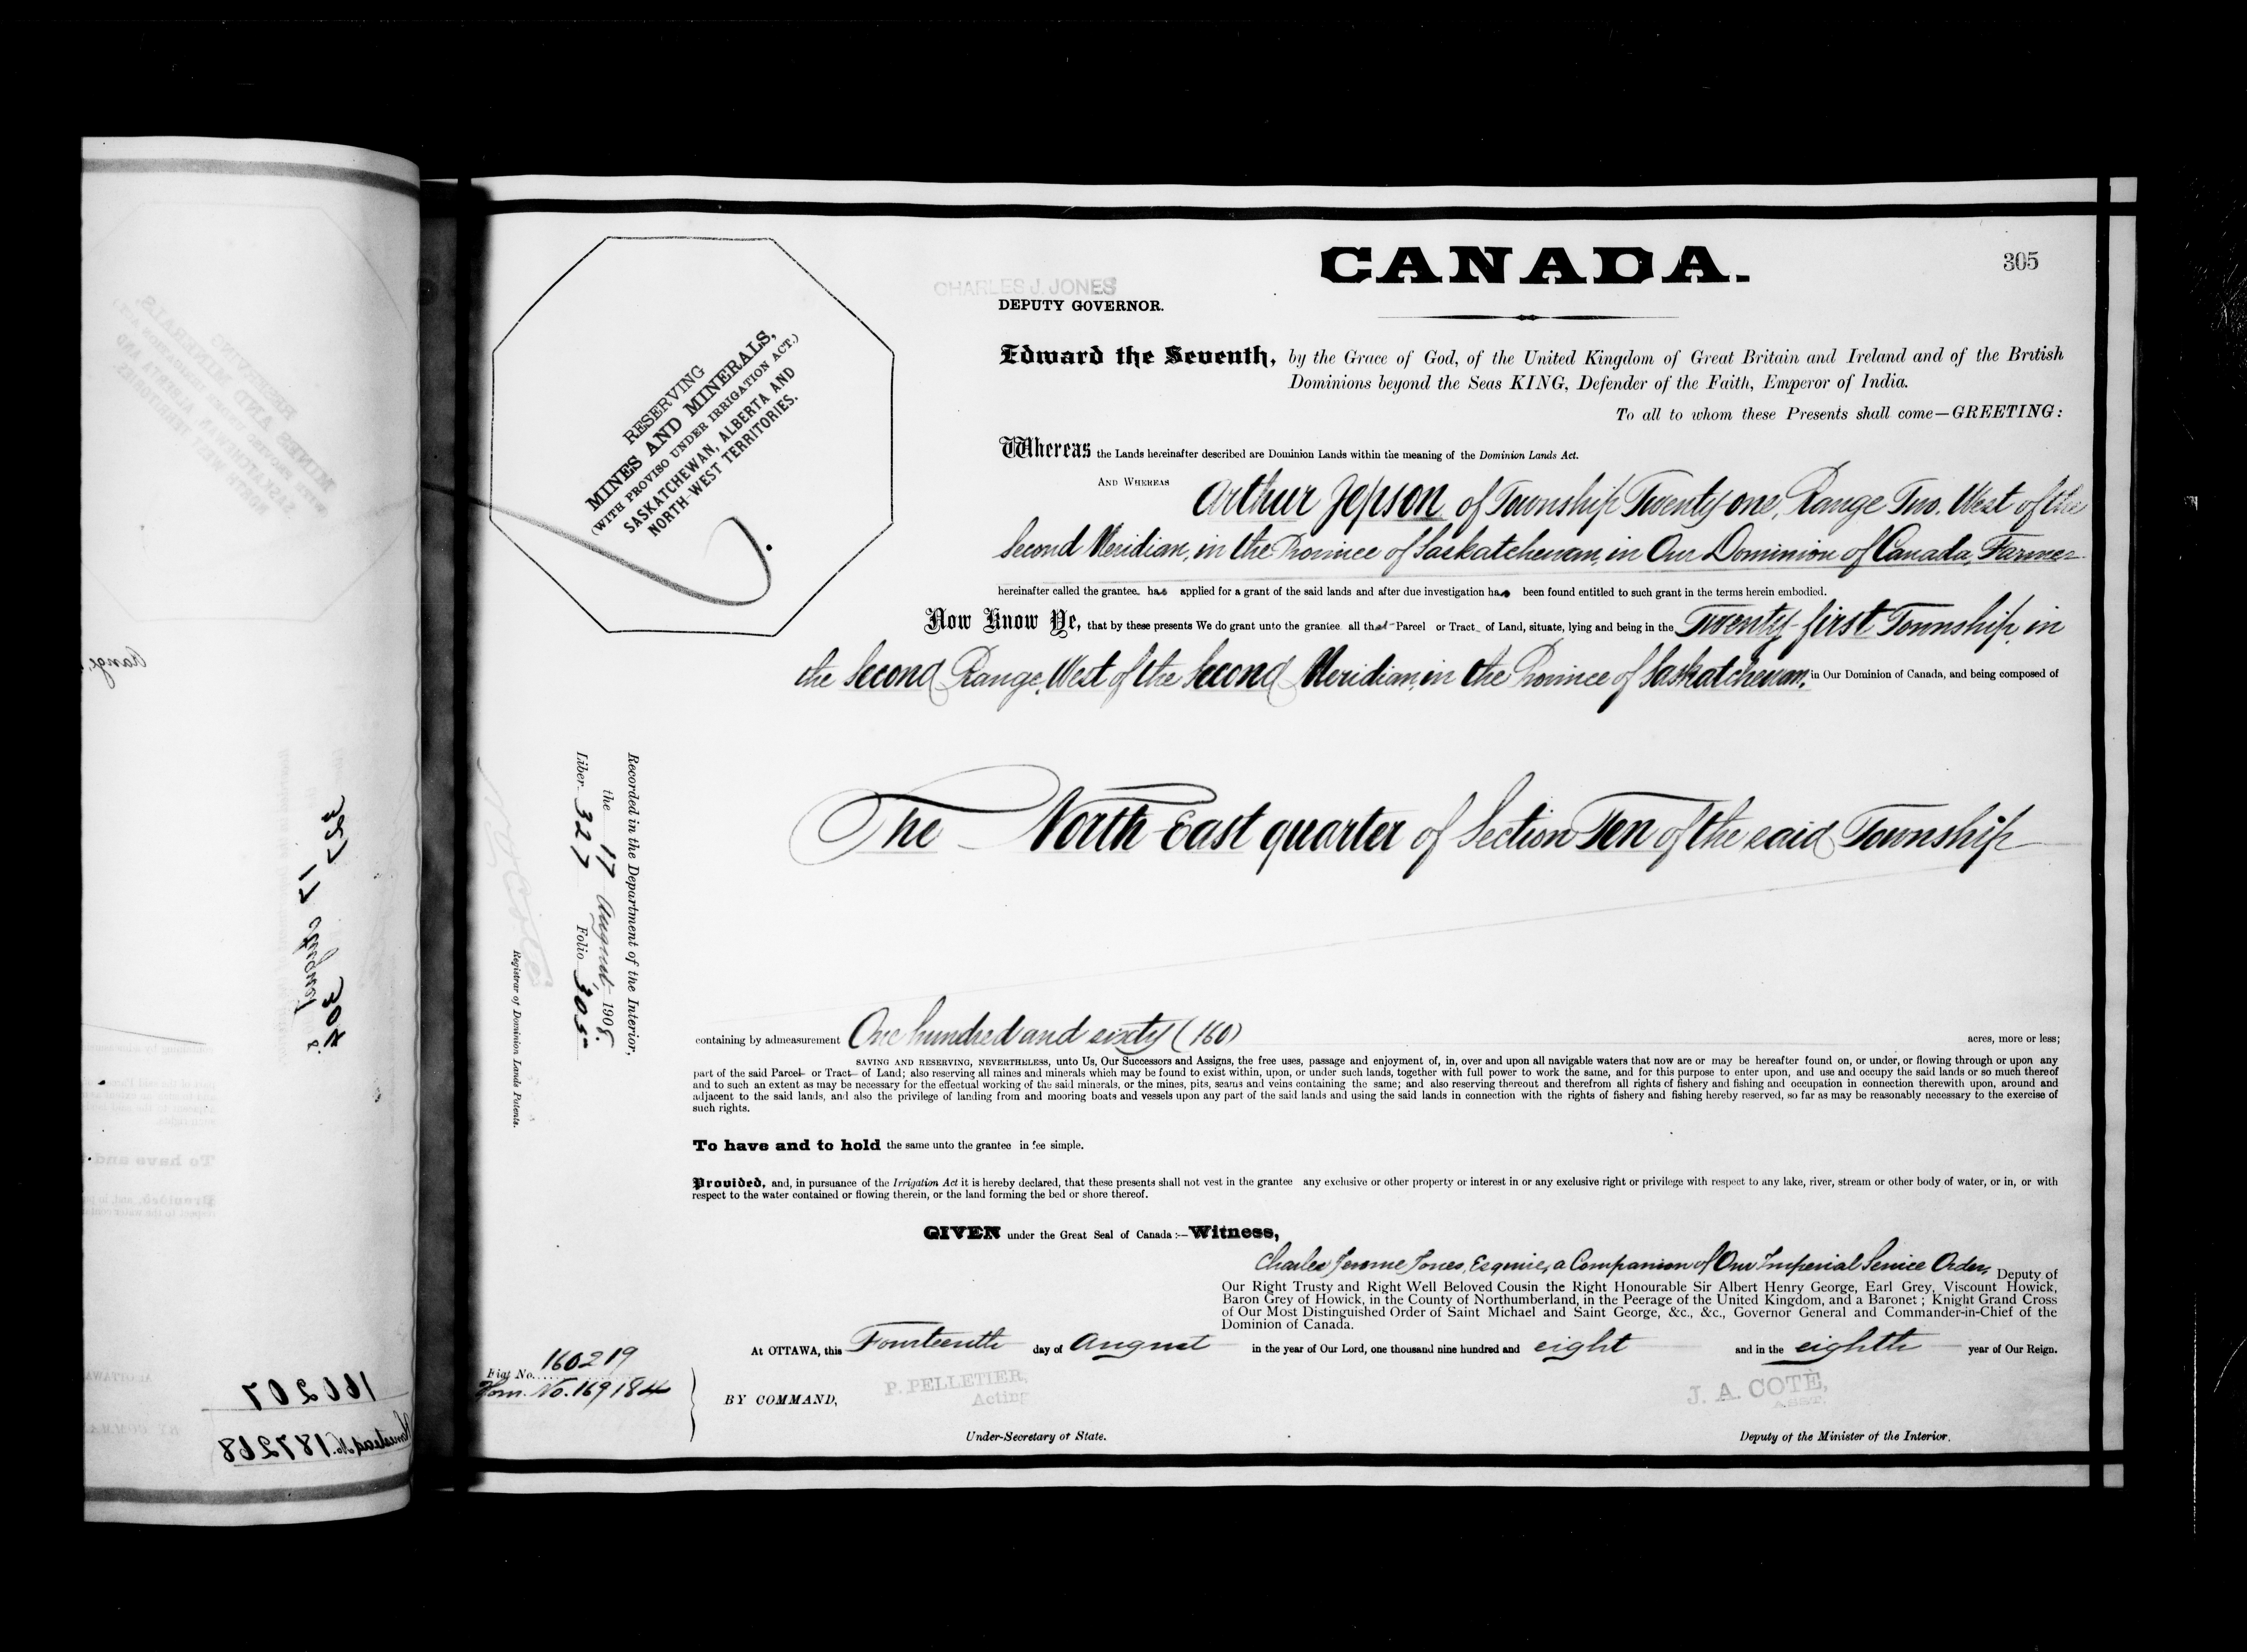 CANADA.
305
CHARLES J. JONES
DEPUTY GOVERNOR.
RESERVING
MINES AND MINERALS,
(WITH PROVISO UNDER IRRIGATION ACT.)
SASKATCHEWAN, ALBERTA AND
NORTH-WEST TERRITORIES.
Edward the Seventh, by the Grace of God, of the United Kingdom of Great Britain and Ireland and of the British
Dominions beyond the Seas KING, Defender of the Faith, Emperor of India.
To all to whom these Presents shall come—GREETING:
Whereas the Lands hereinafter described are Dominion Lands within the meaning of the Dominion Lands Act.
AND WHEREAS Arthur Jepson of Township Twenty one, Range Two, West of the
Second Meridian, in the Province of Saskatchewan, in Our Dominion of Canada, Farmer
hereinafter called the grantee has applied for a grant of the said lands and after due investigation has been found entitled to such grant in the terms herein embodied.
Now Know Ye, that by these presents We do grant unto the grantee all that Parcel or Tract of Land, situate, lying and being in the Twenty-first Township, in
the Second Range, West of the Second Meridian, in the Province of Saskatchewan, in Our Dominion of Canada, and being composed of
The North East quarter of Section Ten of the said Township
Recorded in the Department of the Interior,
the 17 August 1908.
Liber 327 Folio 305
Registrar of Dominion Lands Patents.
containing by admeasurement One hundred and sixty (160) acres, more or less;
SAVING AND RESERVING, NEVERTHELESS, unto Us, Our Successors and Assigns, the free uses, passage and enjoyment of, in, over and upon all navigable waters that now are or may be hereafter found on, or under, or flowing through or upon any
part of the said Parcel or Tract of Land; also reserving all mines and minerals which may be found to exist within, upon, or under such lands, together with full power to work the same, and for this purpose to enter upon, and use and occupy the said lands or so much thereof
and to such an extent as may be necessary for the effectual working of the said minerals, or the mines, pits, seams and veins containing the same; and also reserving thereout and therefrom all rights of fishery and fishing and occupation in connection therewith upon, around and
adjacent to the said lands, and also the privilege of landing from and mooring boats and vessels upon any part of the said lands and using the said lands in connection with the rights of fishery and fishing hereby reserved, so far as may be reasonably necessary to the exercise of
such rights.
To have and to hold the same unto the grantee in fee simple.
Provided, and, in pursuance of the Irrigation Act it is hereby declared, that these presents shall not vest in the grantee any exclusive or other property or interest in or any exclusive right or privilege with respect to any lake, river, stream or other body of water, or in, or with
respect to the water contained or flowing therein, or the land forming the bed or shore thereof.
GIVEN under the Great Seal of Canada:—Witness,
Charles Jerome Jones, Esquire, a Companion of Our Imperial Service Order, Deputy of
Our Right Trusty and Right Well Beloved Cousin the Right Honourable Sir Albert Henry George, Earl Grey, Viscount Howick,
Baron Grey of Howick, in the County of Northumberland, in the Peerage of the United Kingdom, and a Baronet; Knight Grand Cross
of Our Most Distinguished Order of Saint Michael and Saint George, &c., &c., Governor General and Commander-in-Chief of the
Dominion of Canada.
At OTTAWA, this Fourteenth day of August in the year of Our Lord, one thousand nine hundred and eight and in the eighth year of Our Reign.
Fiat No. 160219
Hom. No. 169184
BY COMMAND,
P. PELLETIER,
Acting
Under-Secretary of State.
J. A. COTÉ,
ASST.
Deputy of the Minister of the Interior.
160207
Homestead No. 187268